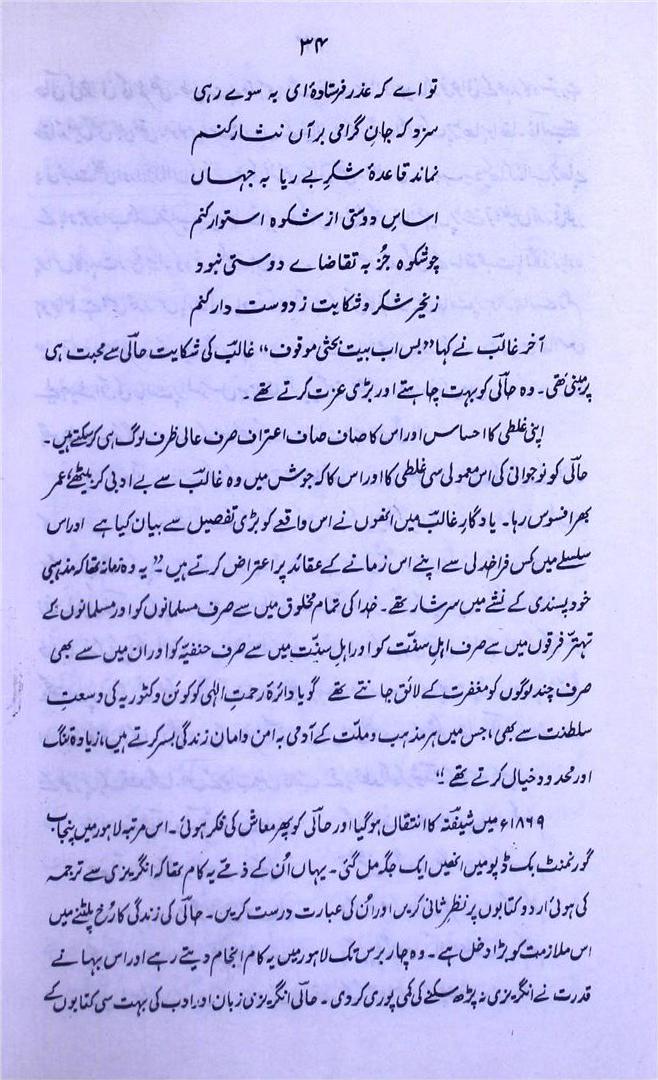 ۳۴
تو اے کہ عذر فرستادۂ ای بہ سوے رہی
سزد کہ جانِ گرامی برآں نثار کنم
نماند قاعدۂ شکرِ بے ریا بہ جہاں
اساسِ دوستی از شکوہ استوار کنم
چو شکوہ جُز بہ تقاضاے دوستی نبود
زخیرِ شکر و شکایت ز دوست دار کنم
آخر غالبؔ نے کہا ”بس اب بیت بحثی موقوف“ غالبؔ کی شکایت حالیؔ سے محبت ہی
پر مبنی تھی۔ وہ حالیؔ کو بہت چاہتے اور بڑی عزت کرتے تھے۔
اپنی غلطی کا احساس اور اس کا صاف صاف اعتراف صرف عالی ظرف لوگ ہی کر سکتے ہیں۔
حالیؔ کو نوجوانی کی اس معمولی سی غلطی کا اور اس کا کہ جوش میں وہ غالبؔ سے بے ادبی کر بیٹھے عمر
بھر افسوس رہا۔ یادگارِ غالبؔ میں انھوں نے اس واقعے کو بڑی تفصیل سے بیان کیا ہے اور اس
سلسلے میں کس فراخدلی سے اپنے اس زمانے کے عقائد پر اعتراض کرتے ہیں۔ ”یہ وہ زمانہ تھا کہ مذہبی
خود پسندی کے نشے میں سرشار تھے۔ خدا کی تمام مخلوق میں سے صرف مسلمانوں کو اور مسلمانوں کے
تہتر فرقوں میں سے صرف اہلِ سنّت کو اور اہلِ سنّت میں سے صرف حنفیہ کو اور ان میں سے بھی
صرف چند لوگوں کو مغفرت کے لائق جانتے تھے گویا دائرۂ رحمتِ الٰہی کو کوئن وکٹوریہ کی وسعتِ
سلطنت سے بھی، جس میں ہر مذہب و ملّت کے آدمی بہ امن و امان زندگی بسر کرتے ہیں، زیادہ تنگ
اور محدود خیال کرتے تھے“
۱۸۶۹ء میں شیفتہؔ کا انتقال ہو گیا اور حالیؔ کو پھر معاش کی فکر ہوئی۔ اس مرتبہ لاہور میں پنجاب
گورنمنٹ بک ڈپو میں انھیں ایک جگہ مل گئی۔ یہاں اُن کے ذمّے یہ کام تھا کہ انگریزی سے ترجمہ
کی ہوئی اردو کتابوں پر نظرِ ثانی کریں اور اُن کی عبارت درست کریں۔ حالیؔ کی زندگی کا رُخ پلٹنے میں
اس ملازمت کو بڑا دخل ہے۔ وہ چار برس تک لاہور میں یہ کام انجام دیتے رہے اور اس بہانے
قدرت نے انگریزی نہ پڑھ سکنے کی کمی پوری کر دی۔ حالیؔ انگریزی زبان اور ادب کی بہت سی کتابوں کے